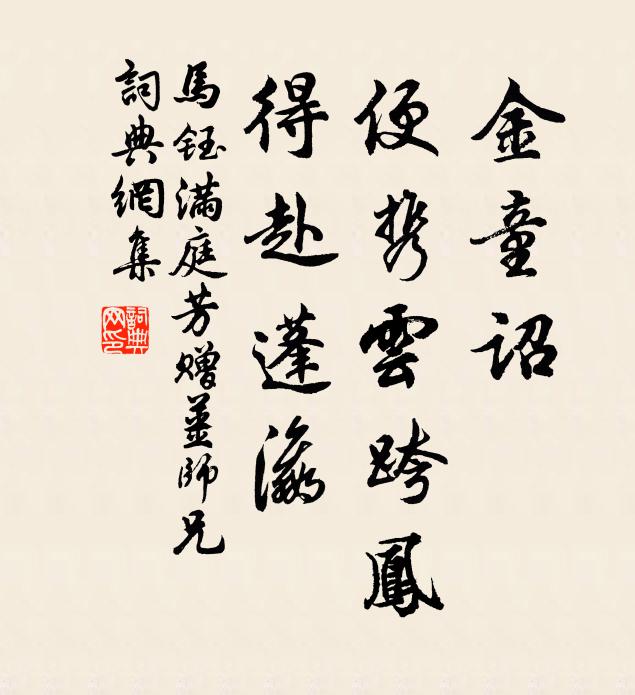 金童詔
便携雲跨鳳
得赴蓬瀛
馬鈺滿庭芳贈薑師兄
詞典網集
詞典網印